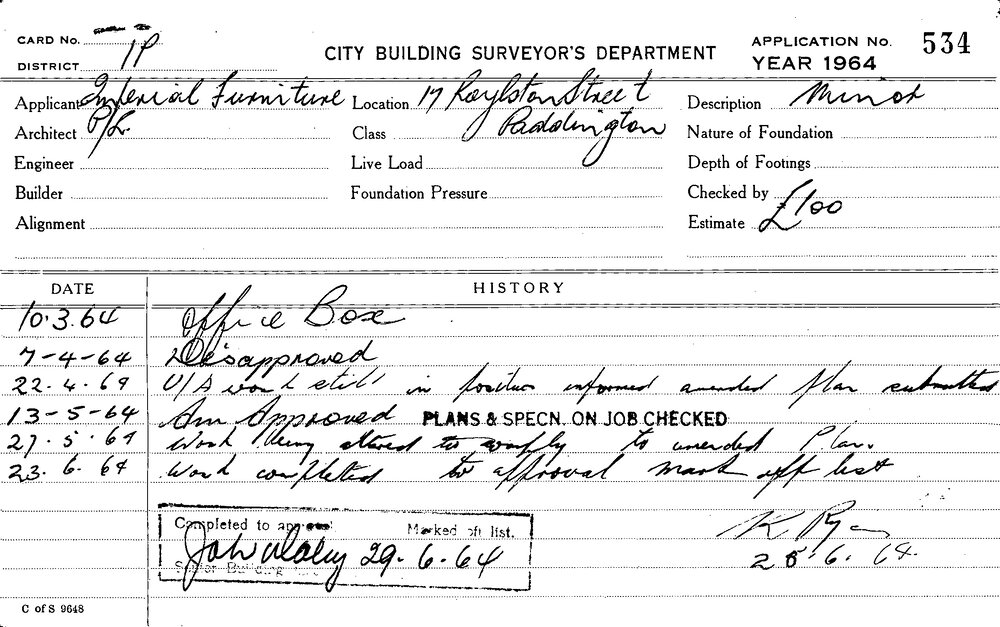 CARD No.
DISTRICT IP
CITY BUILDING SURVEYOR'S DEPARTMENT
APPLICATION No. 534
YEAR 1964
Applicant Imperial Furniture P/L.
Location 17 Roylston Street Paddington
Description Minor
Architect
Class
Nature of Foundation
Engineer
Live Load
Depth of Footings
Builder
Foundation Pressure
Checked by
Alignment
Estimate £100
DATE HISTORY
10.3.64 Office Box
7-4-64 Disapproved
22.4.64 U/A work still in position informed amended plan submitted
13-5-64 Am Approved PLANS & SPECN. ON JOB CHECKED
27.5.64 Work being altered to comply to amended Plan.
23.6.64 Work completed to approval mark off list
K Ryan
25.6.64.
Completed to approval Marked off list.
John 29.6.64
Senior Building
C of S 9648